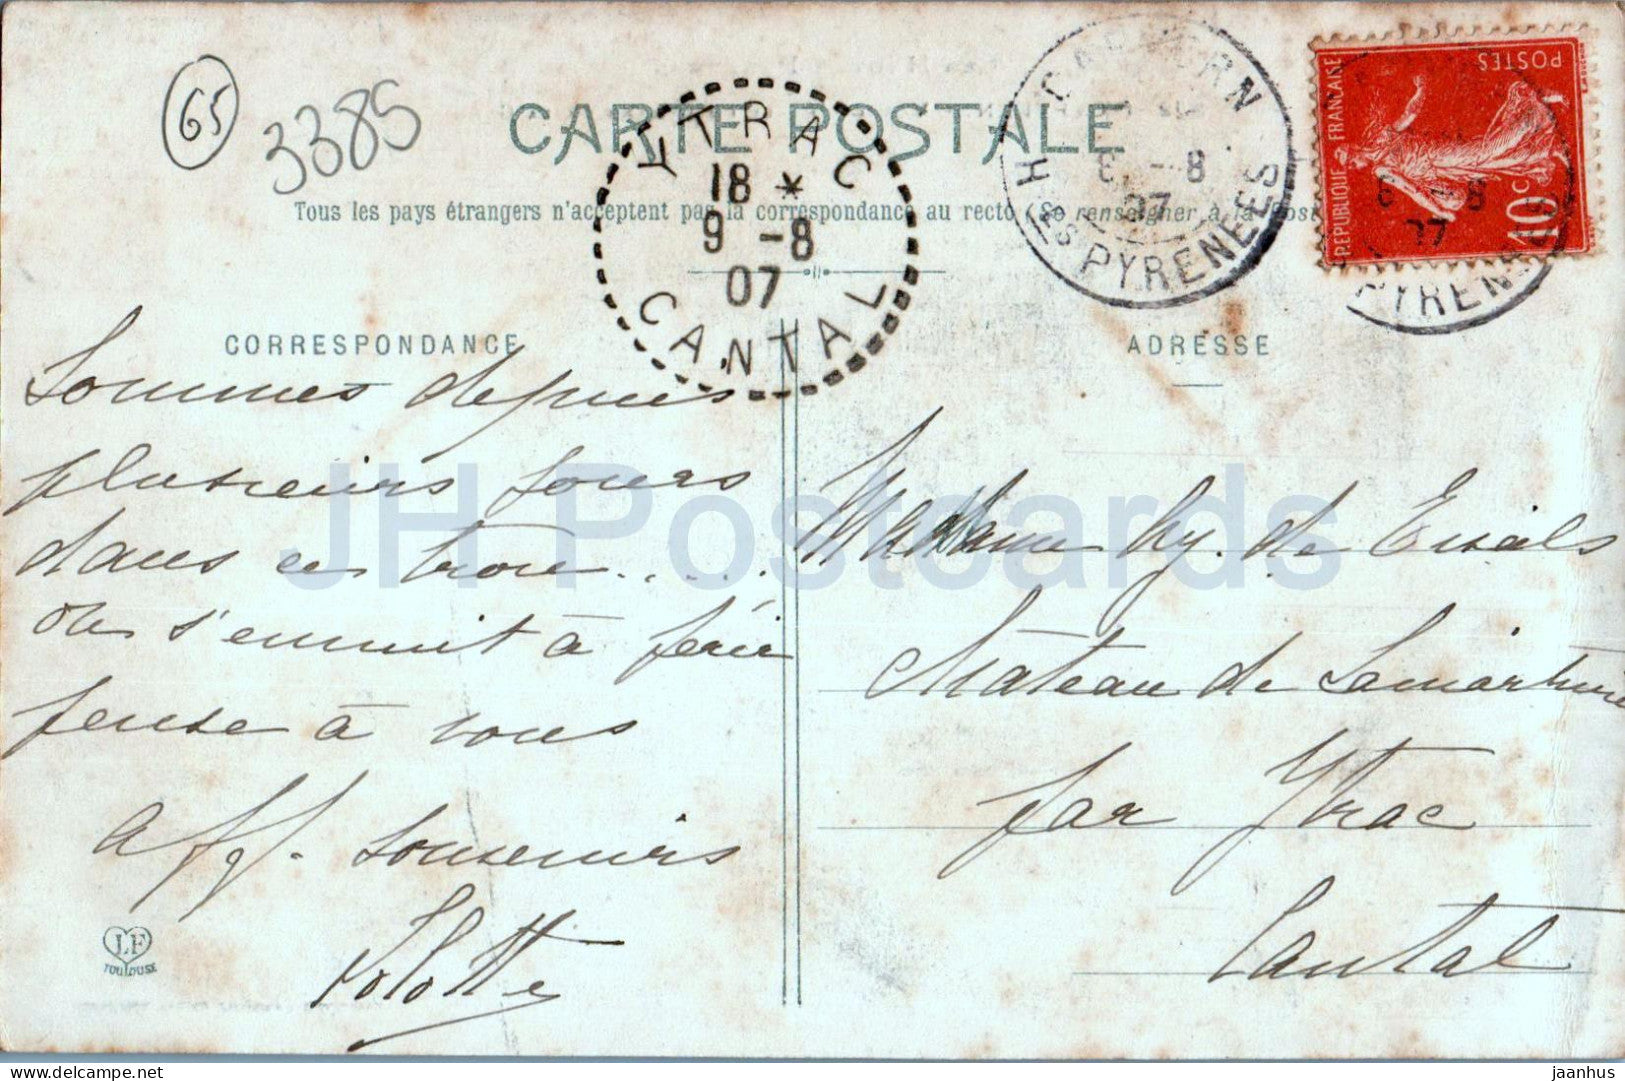 65
3385
CARTE POSTALE
Tous les pays étrangers n'acceptent pas la correspondance au recto (Se renseigner à la Post
YTRAC
18 *
9 -8
07
CANTAL
8 - 8
07
HTES PYRENEES
REPUBLIQUE FRANÇAISE
POSTES
10c
CORRESPONDANCE
Sommes depuis
plusieurs jours
dans ce trou....
on s'ennuit à périr
pense à vous
aff. souvenirs
Lolotte
LF
TOULOUSE
ADRESSE
Madame de
Château de Lamartinie
par Ytrac
Cantal
JH Postcards
jaanhus